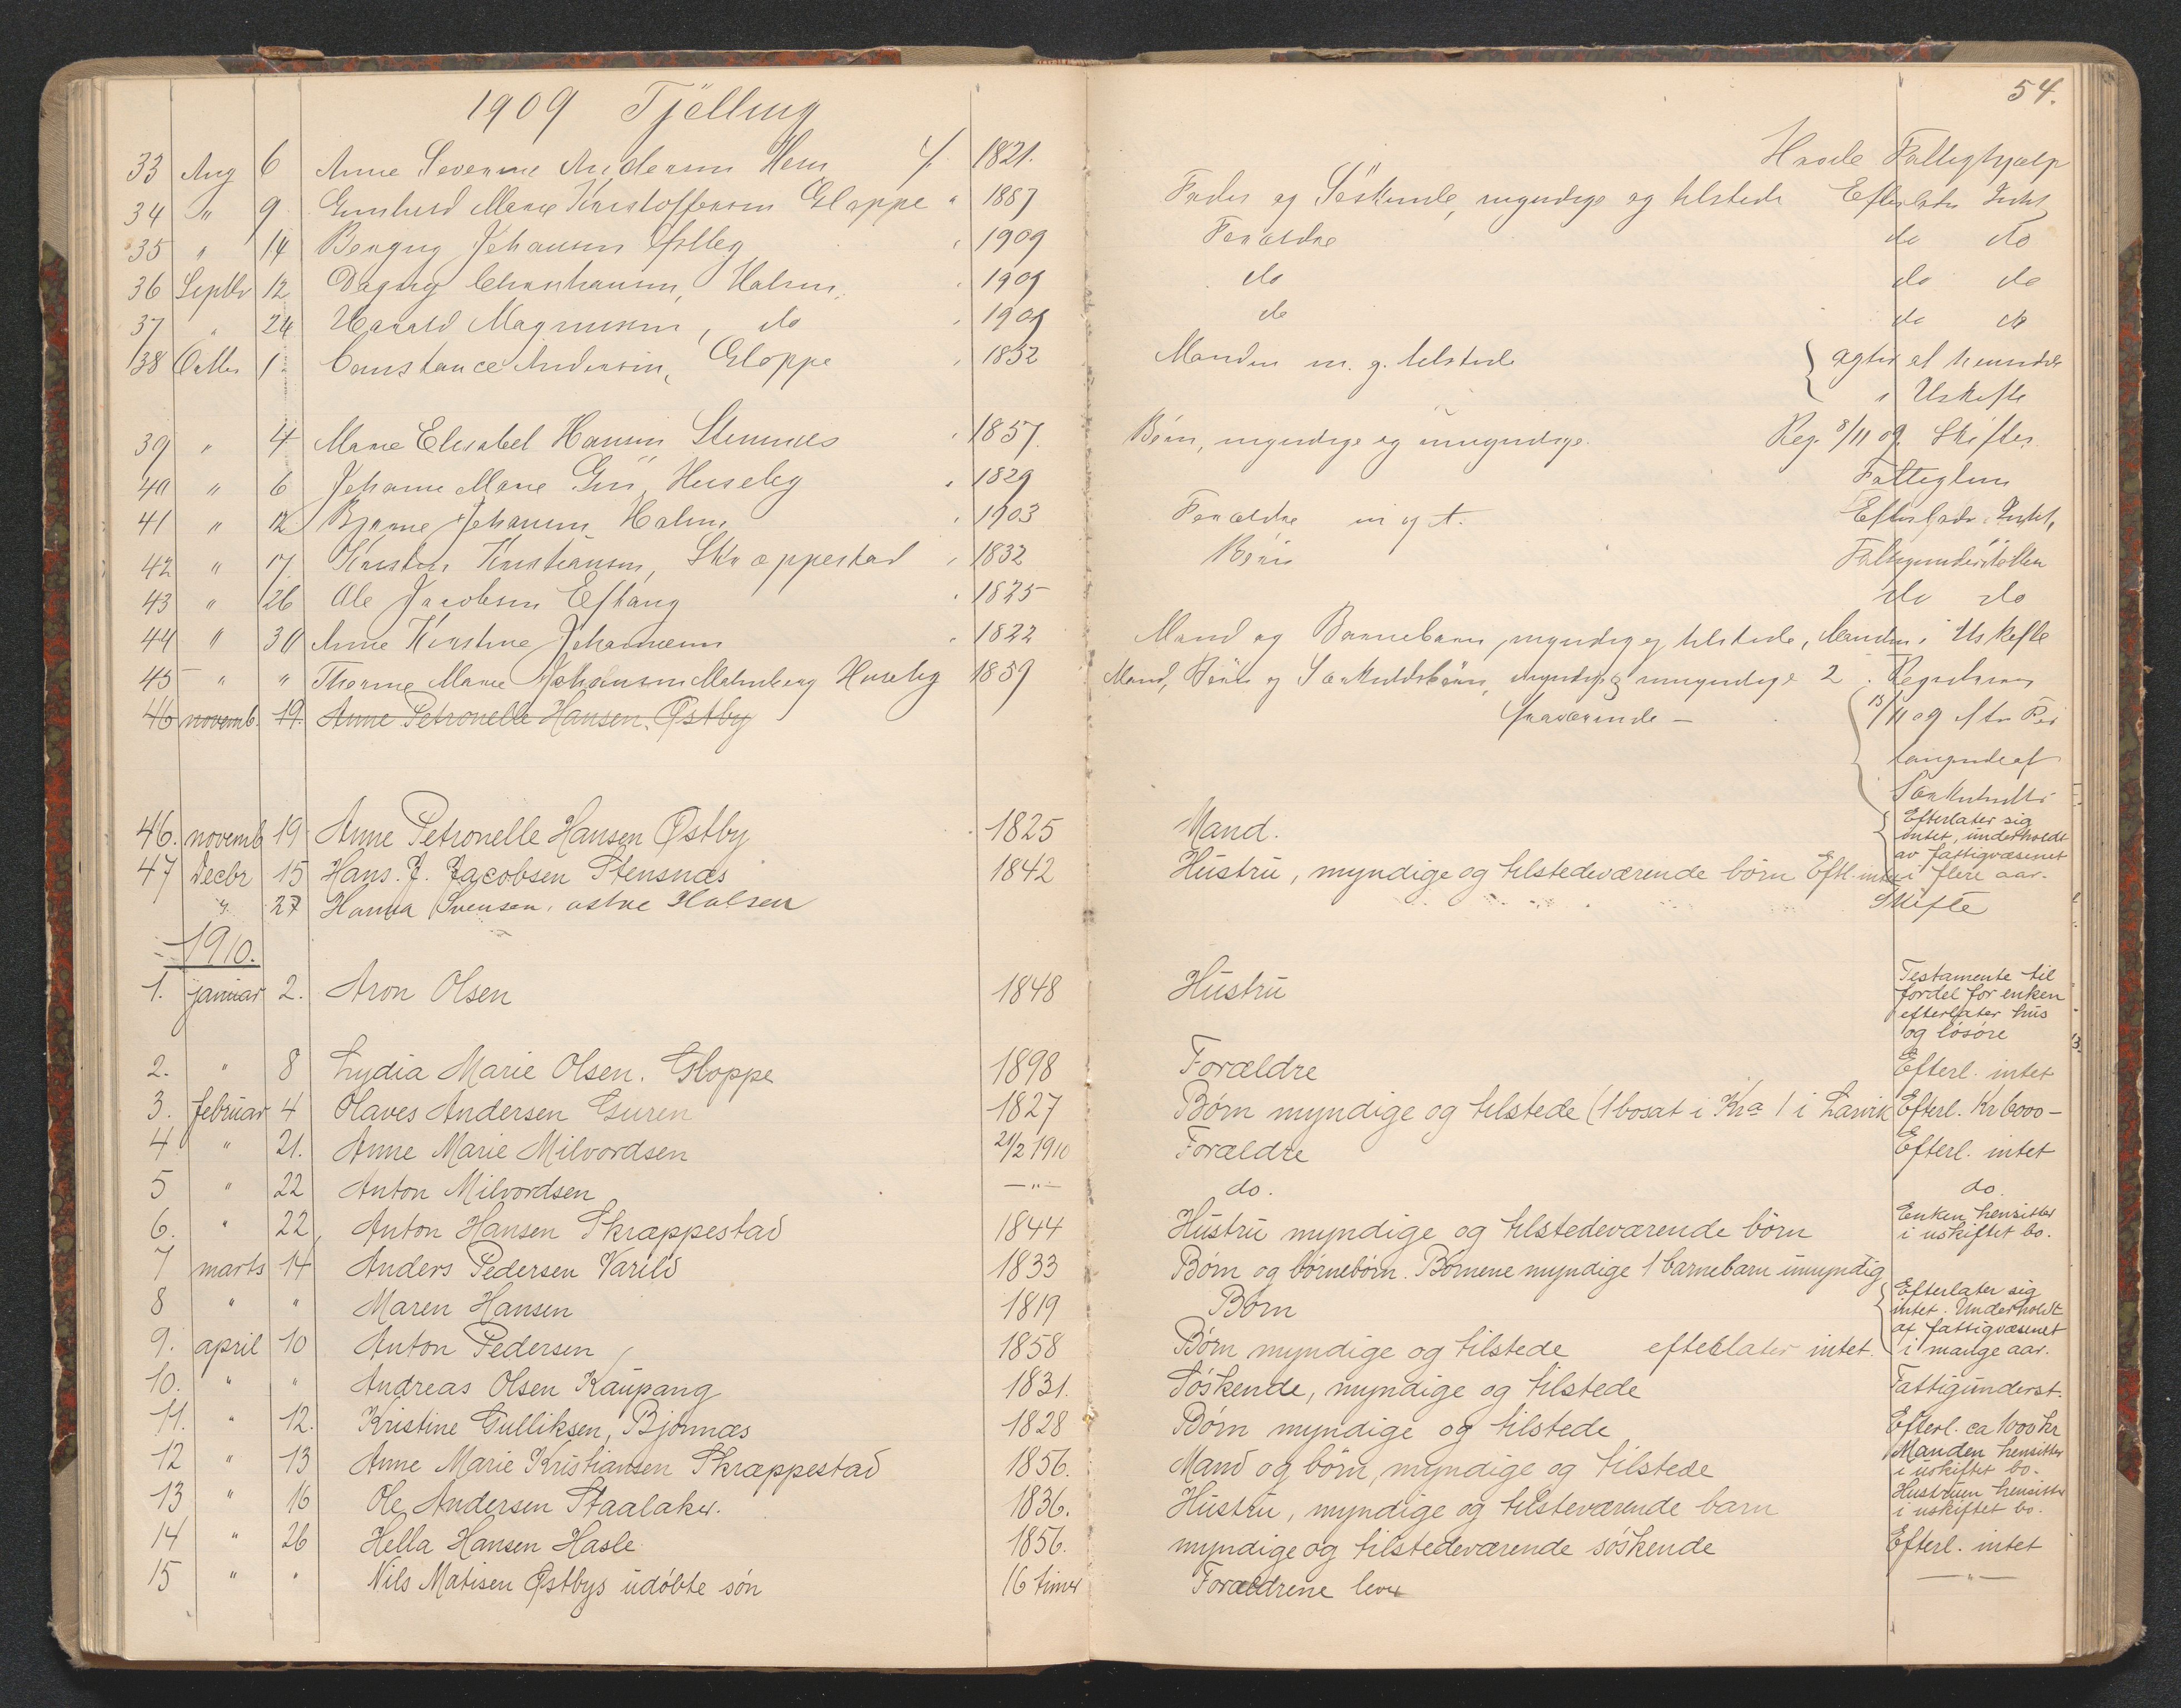 54.
1909 Tjølling
33 Aug 6 Anne Severine Andersen Hem f. 1821. Havde Fattighjælp
34 " 9 Gunhild Marie Kristoffersen Gloppe " 1887 Fader og Söskende, myndige og tilstede Efterlader Intet
35 " 14 Johansen 1909 Forældre do do
36 Septbr 12 Dagny Christiansen, Halsen 1909 do do do
37 " 24 Harald Magnussen, do 1909 do do do
38 Octbr 1 Constance Andersen, Gloppe 1852 Manden m. g. tilstede { agter at hensidde
i Uskifte
39 " 4 Marie Elisabet Hansen Stensnes 1857. Børn, myndige og umyndige. Reg. 8/11 09. Skiftes
40 " 6 Johanne Marie Huseby 1829 Fattiglem
41 " 12 Bjarne Johansen Halsen 1903 Forældre m og t. Efterlader Intet,
42 " 17 Kristen Kristiansen, Skræppestad 1832 Børn Fattigunderstøttet
43 " 26 Ole Jacobsen Eftang 1825 do do
44 " 30 Anne Kirstine Johannesen 1822 Mand og Barnebarn, myndig og tilstede, Manden i Uskifte
45 " " Thorine Marie Johansen Malmberg Huseby 1859 Mand, Børn og Særkuldsbørn, myndige & umyndige 2 Registreres
46 novemb. 19. Anne Petronelle Hansen. Østby fraværende — 15/11 09 efter For
langende af
Særkuldts
46. novemb 19 Anne Petronelle Hansen Østby 1825 Mand. { Efterlater sig
intet, underholdt
av fattigvæsenet
47 Decbr 15 Hans. J. Jacobsen Stensnæs 1842 Hustru, myndige og tilstedeværende børn Eftl. intet i flere aar.
" 27 Hanna Svensen, østre Halsen Skifte
1910.
1. januar 2. Aron Olsen 1848 Hustru Testamente til
fordel for enken
efterlater hus
og løsøre
2. " 8 Lydia Marie Olsen. Gloppe 1898 Forældre Efterl. intet
3. februar 4 Olaves Andersen Guren 1827 Børn myndige og tilstede (1 bosat i Kra 1 i Larvik Efterl. Kr 6000 -
4 " 21. Anne Marie Milvordsen 21/2 1910 Forældre Efterl. intet
5 " 22 Anton Milvordsen — " — do. do.
6. " 22, Anton Hansen Skræppestad 1844 Hustru myndige og tilstedeværende børn Enken hensitter
i uskiftet bo.
7 marts 14 Anders Pedersen Varild 1833 Børn og børnebørn. Børnene myndige 1 barnebarn umyndig
8 " " Maren Hansen 1819 Børn { Efterlater sig
intet. Underholdt
af fattigvæsenet
i mange aar.
9. april 10 Anton Pedersen 1858 Børn myndige og tilstede efterlater intet.
10. " " Andreas Olsen Kaupang 1831. Søskende, myndige og tilstede Fattigunderst.
11. " 12. Kristine Gulliksen, Bjønnæs 1828 Børn myndige og tilstede Efterl. ca 1000 kr
12 " 13 Anne Marie Kristiansen Skræppestad 1856. Mand og børn, myndige og tilstede Manden hensitter
i uskiftet bo.
13 " 16 Ole Andersen Staalaker. 1836. Hustru, myndige og tilsteværende barn Hustruen hensitter
i uskiftet bo.
14 " 26 Hella Hansen Hasle 1856. myndige og tilstedeværende søskende Efterl. intet
15 " " Nils Matisen Østbys udøbte søn 16 timer Forældrene lever — " —